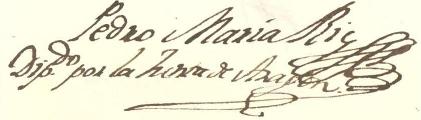 Pedro Maria Ric
Dip.do por la Junta de Aragon